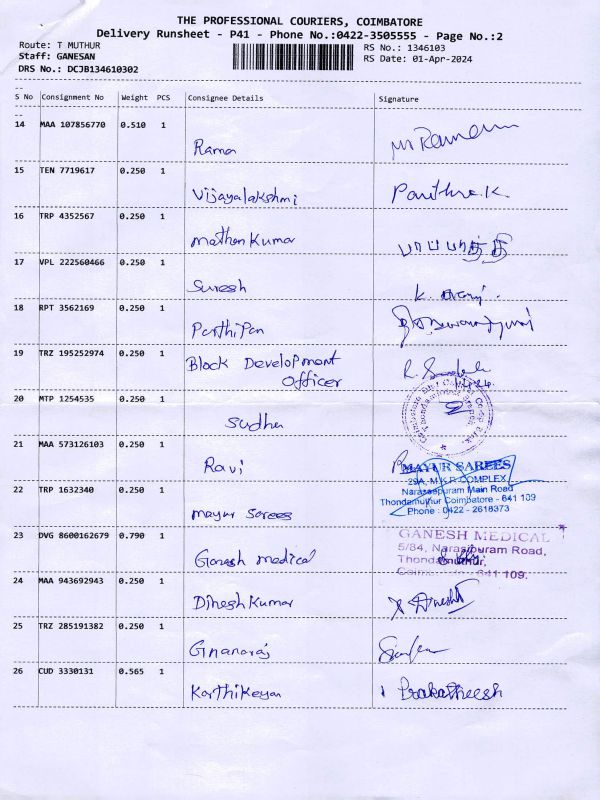 THE PROFESSIONAL COURIERS, COIMBATORE
Delivery Runsheet - P41 - Phone No.:0422-3505555 - Page No.:2
Route: T MUTHUR RS No.: 1346103
Staff: GANESAN RS Date: 01-Apr-2024
DRS No.: DCJB134610302
S No Consignment No Weight PCS Consignee Details Signature
14 MAA 107856770 0.510 1
Rama
15 TEN 7719617 0.250 1
Vijayalakshmi Pavithra.K.
16 TRP 4352567 0.250 1
Mathan Kumar
17 VPL 222560466 0.250 1
Suresh
18 RPT 3562169 0.250 1
Parthipan
19 TRZ 195252974 0.250 1
Block Development
Officer
20 MTP 1254535 0.250 1
Sudha
21 MAA 573126103 0.250 1
Ravi MAYUR SAREES
29A, M.K.P. COMPLEX
22 TRP 1632340 0.250 1 Naraseepuram Main Road
Thondamuthur Coimbatore - 641 109
Mayur Sarees Phone : 0422 - 2618373
23 DVG 8600162679 0.790 1 GANESH MEDICAL
5/84, Narasipuram Road,
Ganesh medical Thondamuthur,
641 109.
24 MAA 943692943 0.250 1
Dinesh Kumar Dinesh
25 TRZ 285191382 0.250 1
Gnanaraj
26 CUD 3330131 0.565 1
Karthikeyan Prakatheesh